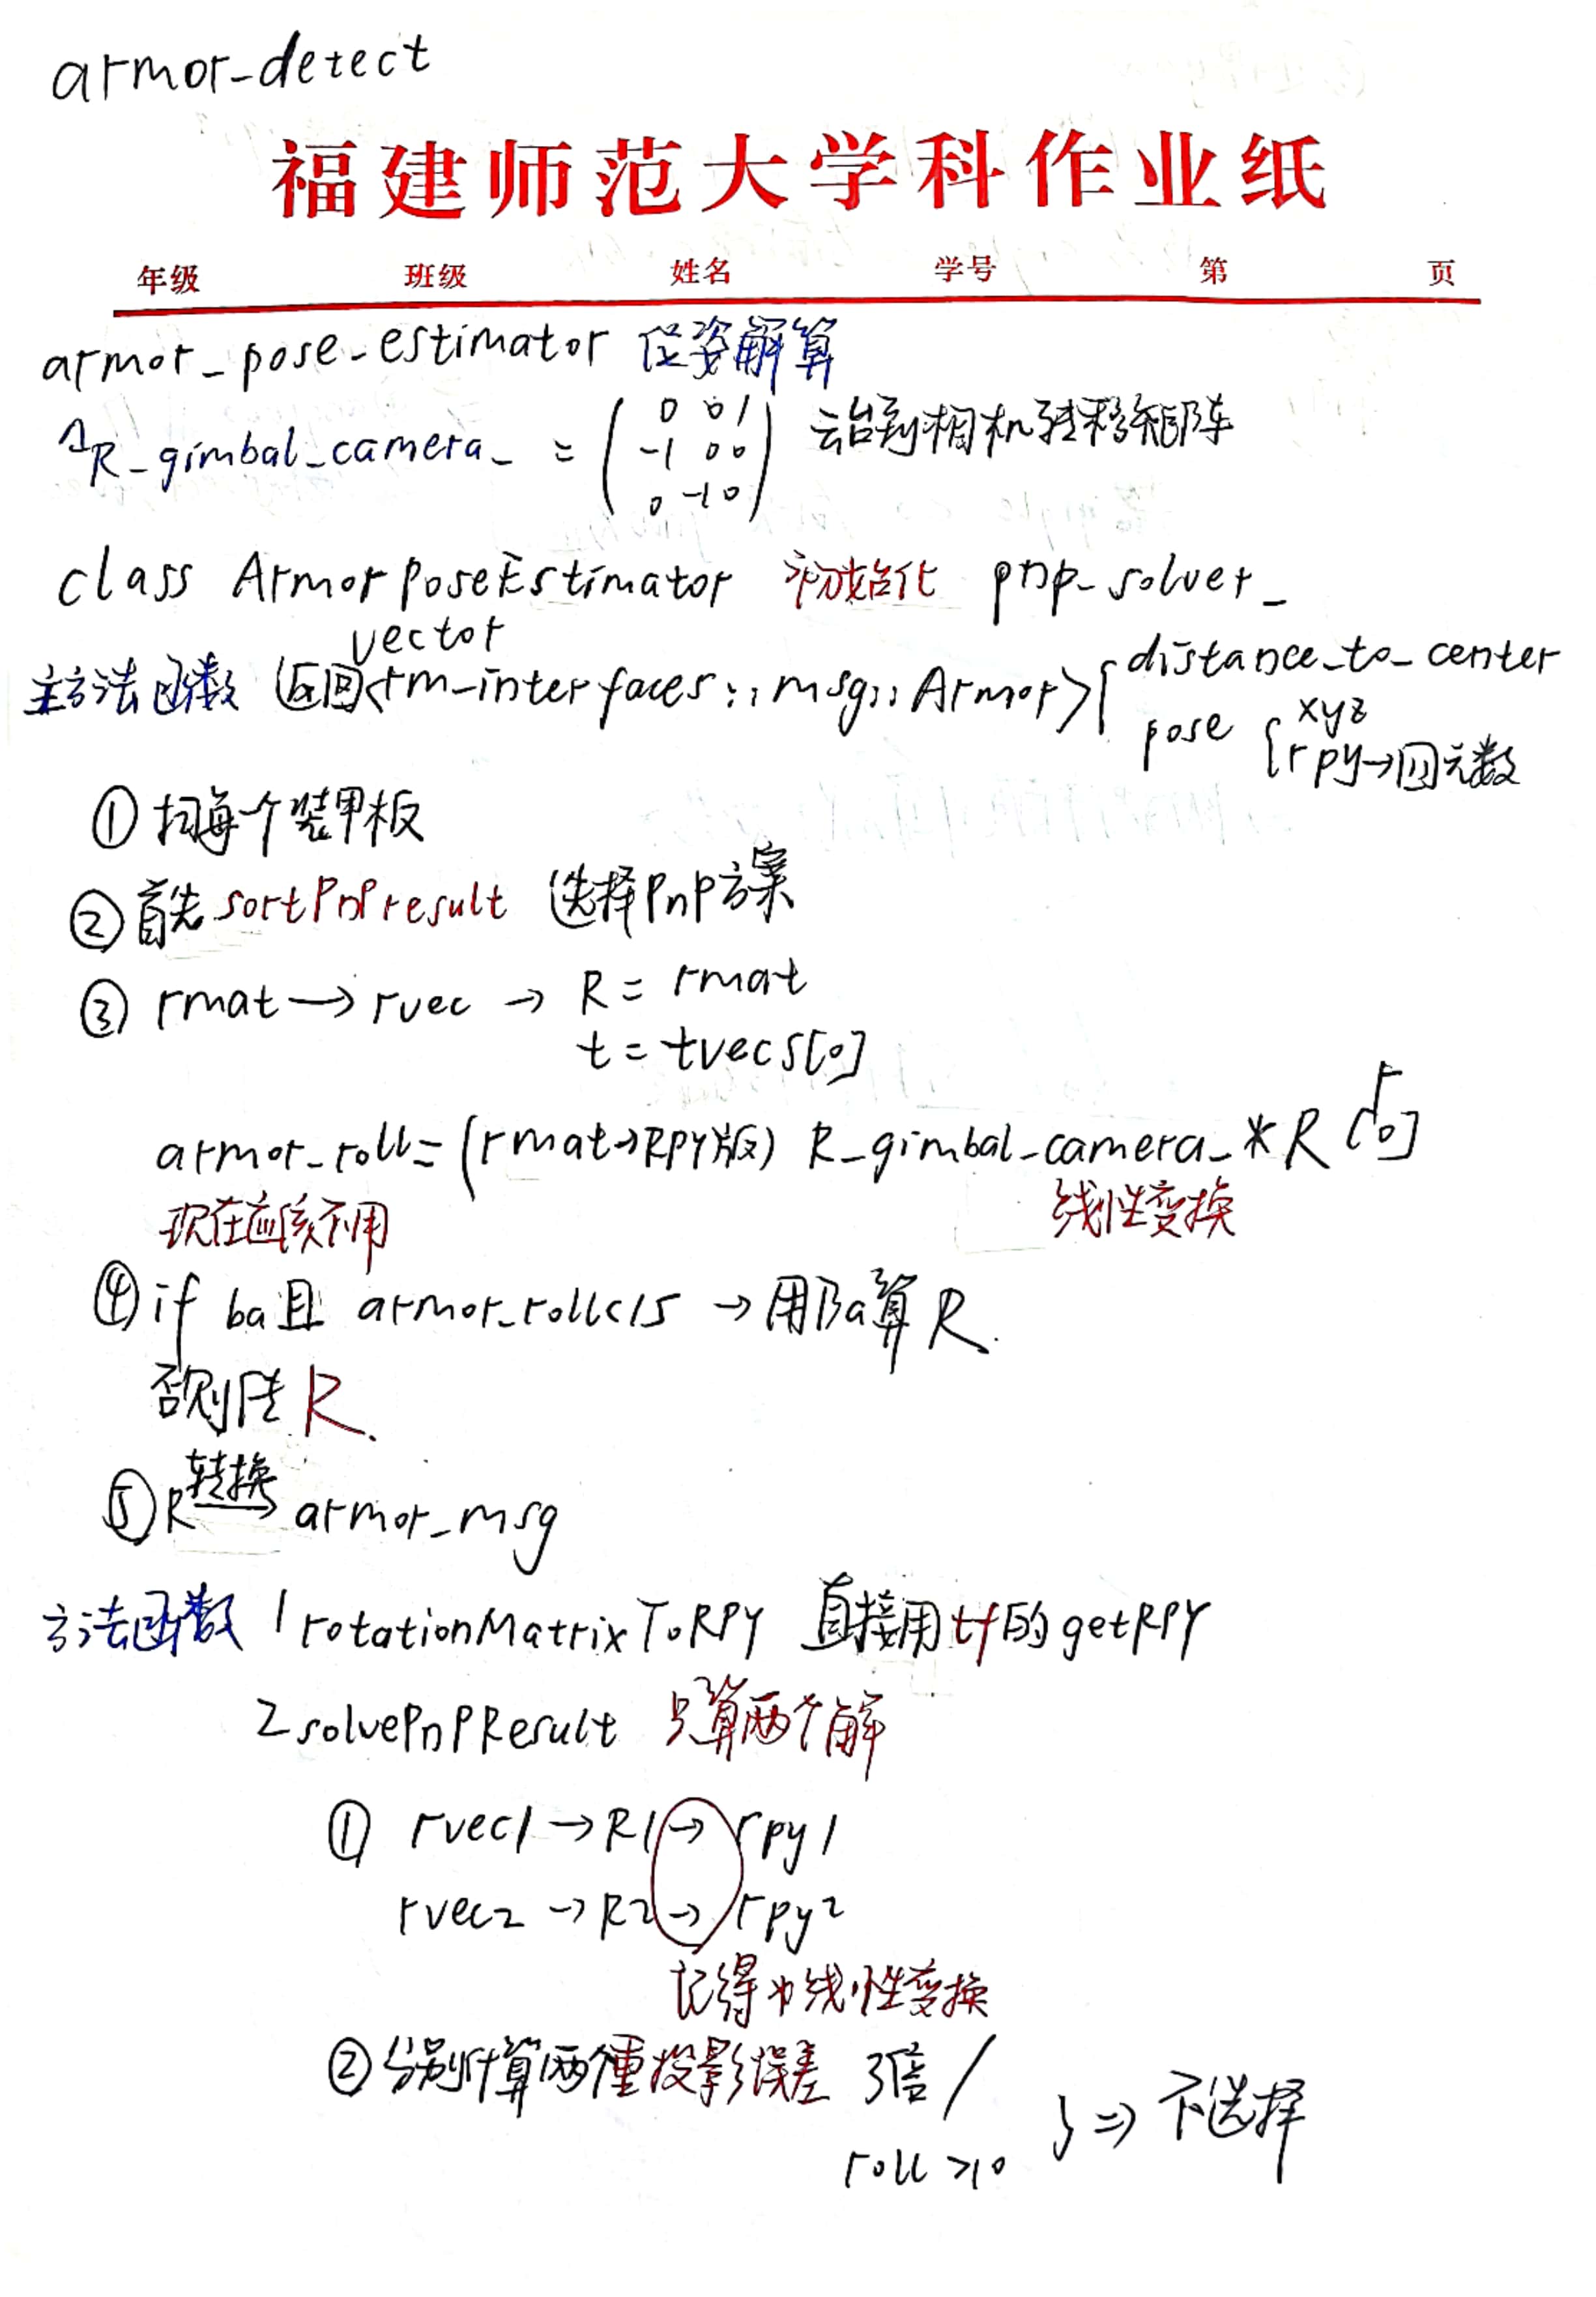 armor_detect
福建师范大学科作业纸
年级 班级 姓名 学号 第 页
armor_pose_estimator 位姿解算
R_gimbal_camera_ = ( 0 0 1
-1 0 0
0 -1 0 ) 云台到相机转移矩阵
class ArmorPoseEstimator 初始化 pnp_solver_
主方法函数 返回vector<rm_interfaces::msg::Armor> { distance_to_center
pose { xyz
rpy→四元数
① 扫每个装甲板
② 首先 sortPnPresult 选择PnP方案
③ rmat → rvec → R = rmat
t = tvecs[0]
armor_roll = (rmat→RPY版) R_gimbal_camera_ * R [0]
现在应该不用 线性变换
④ if ba且 armor_roll<15 → 用Ba算R.
否则 R.
⑤ R 转换→ armor_msg
方法函数 1 rotationMatrixToRPY 直接用tf的getRPY
2 solvePnPResult 只算两个解
① rvec1 → R1 → rpy1
rvec2 → R2 → rpy2
记得 线性变换
② 分别计算两个重投影误差 3倍 /
roll >10 } ⇒ 不选择